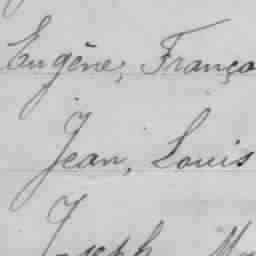 Eugène, Franço
Jean, Louis
Joseph M